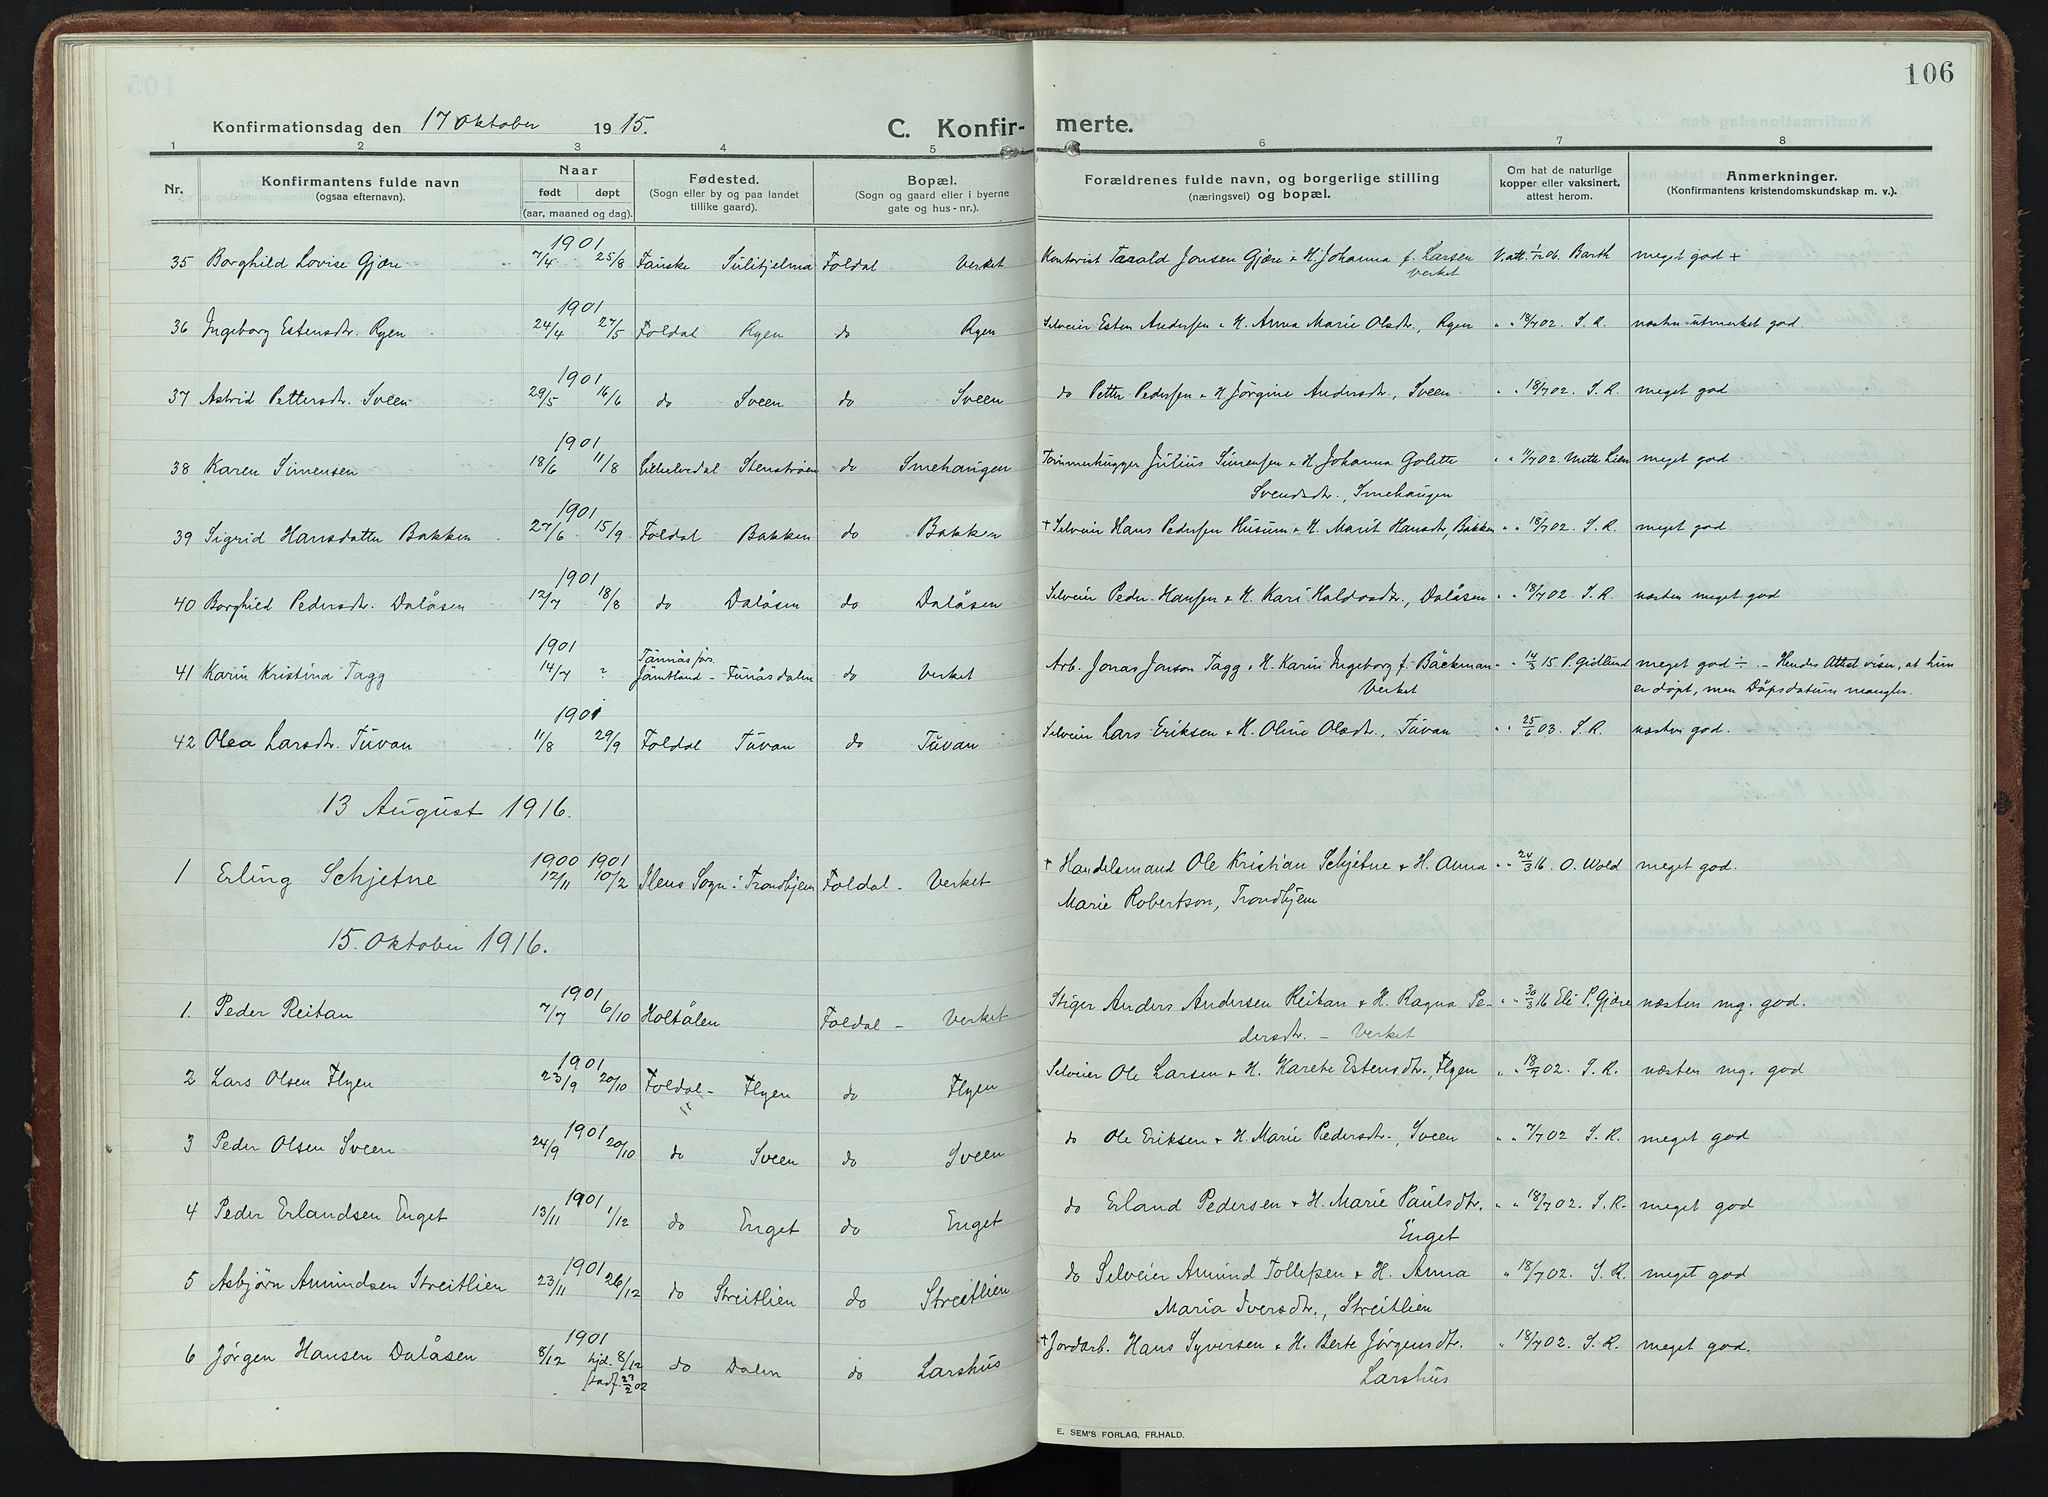 106
Konfirmationsdag den 17 Oktober 1915.
C. Konfirmerte.
1 2 3 4 5 6 7 8
Nr. Konfirmantens fulde navn (ogsaa efternavn). Naar født døpt (aar, maaned og dag). Fødested. (Sogn eller by og paa landet tillike gaard). Bopæl. (Sogn og gaard eller i byerne gate og hus-nr.). Forældrenes fulde navn, og borgerlige stilling (næringsvei) og bopæl. Om hat de naturlige kopper eller vaksinert, attest herom. Anmerkninger. (Konfirmantens kristendomskundskap m. v.).
1901
35 Borghild Lovise Gjøre 7/4 25/8 Fauske Sulitjelma Foldal Verket Kontorist Tarald Jonsen Gjøre & H. Johanna f. Larsen V. att. 1/12 06. Barth meget god +
Verket
1901
36 Ingeborg Estensdtr. Ryen 24/4 27/5 Foldal Ryen do Ryen Selveier Esten Andersen & H. Anna Marie Olsdtr., Ryen " " 18/7 02. S. R. næsten utmerket god.
1901
37 Astrid Pettersdtr. Sveen 29/5 16/6 do Sveen do Sveen do Petter Pedersen & H. Jørgine Andersdtr., Sveen " " 18/7 02. S. R. meget god
1901
38 Karen Simensen 18/6 11/8 Stenstrøen do Smehaugen Tømmerhugger Julius Simensen & H. Johanna Golette " " 7/7 02. Mette Lien meget god
Svendsdtr., Smehaugen
1901
39 Sigrid Hansdatter Bakken 27/6 15/9 Foldal Bakken do Bakken † Selveier Hans Pedersen Husum & H. Marit Hansdtr, Bakken " " 18/7 02. S. R. meget god.
1901
40 Borghild Pedersdtr. Dalåsen 12/7 18/8 do Dalåsen do Dalåsen Selveier Peder Hansen & H. Kari Haldosdtr., Dalåsen " " 18/7 02. S. R. næsten meget god
1901 Tännäs förs.
41 Karin Kristina Tagg 14/7 ? Jämtland - Funäsdalen do Verket Arb. Jonas Jonson Tagg & H. Karin Ingeborg f. Bäckman " " 14/3 15. P. Gidlund meget god ÷ - Hendes Attest viser, at hun
Verket er døpt, men Dåpsdatum mangler.
1901
42 Olea Larsdtr. Tuvan 11/8 29/9 Foldal Tuvan do Tuvan Selveier Lars Eriksen & H. Oline Olsdtr., Tuvan " " 25/6 03. S. R. næsten god.
13 August 1916.
1900 1901
1 Erling Schjetne 12/11 10/2 Ilens Sogn i Trondhjem Foldal - Verket † Handelsmand Ole Kristian Schjetne & H. Anna " " 24/3 16. O. Wold meget god.
Marie Robertson, Trondhjem
15. Oktober 1916.
1901
1. Peder Reitan 7/7 6/10 Holtålen Foldal - Verket Stiger Anders Andersen Reitan & H. Ragna Pe- " " 30/3 16 Eli P. Gjøre næsten mg. god.
dersdtr. - Verket
1901
2 Lars Olsen Flyen 23/9 20/10 Foldal - Flyen do Flyen Selveier Ole Larsen & H. Karete Estensdtr., Flyen " 18/7 02. S. R. næsten mg. god
1901
3 Peder Olsen Sveen 24/9 20/10 do Sveen do Sveen do Ole Eriksen & H. Marie Pedersdtr., Sveen " " 7/7 02 S. R. meget god
1901
4 Peder Erlandsen Enget 13/11 1/12 do Enget do Enget do Erland Pedersen & H. Marie Paulsdtr. " " 18/7 02. S. R. meget god
Enget
1901
5 Asbjørn Amundsen Streitlien 23/11 26/12 do Streitlien do Streitlien do Selveier Amund Tollefsen & H. Anna " 18/7 02. S. R. meget god
Maria Iversdtr., Streitlien
1901
6 Jørgen Hansen Dalåsen 8/12 hjd. 8/12 do Dalen do Larshus † Jordarb. Hans Syversen & H. Berte Jørgensdtr. " 18/7 02. S. R. meget god.
stadf. 23/2 02 Larshus
E. SEM'S FORLAG, FR.HALD.